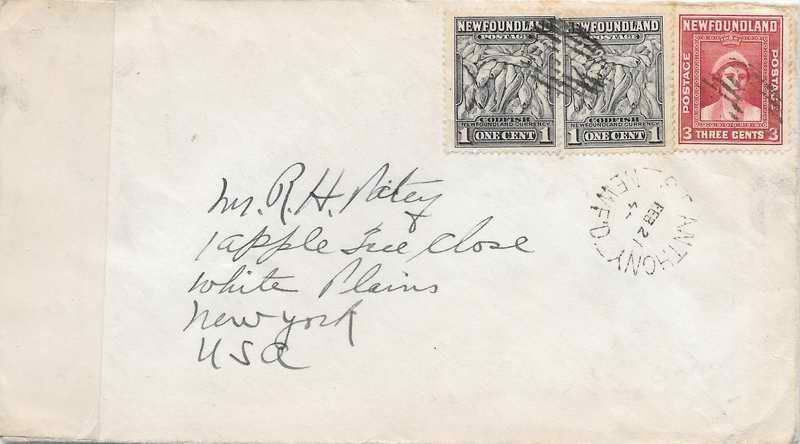 NEWFOUNDLAND
POSTAGE
CODFISH
NEWFOUNDLAND CURRENCY
1 ONE CENT 1
NEWFOUNDLAND
POSTAGE
CODFISH
NEWFOUNDLAND CURRENCY
1 ONE CENT 1
NEWFOUNDLAND
POSTAGE
POSTAGE
3 THREE CENTS 3
ST. ANTHONY
FEB 21
NEWF'D
R. H. Patey
1 apple Tree Close
White Plains
New York
USA